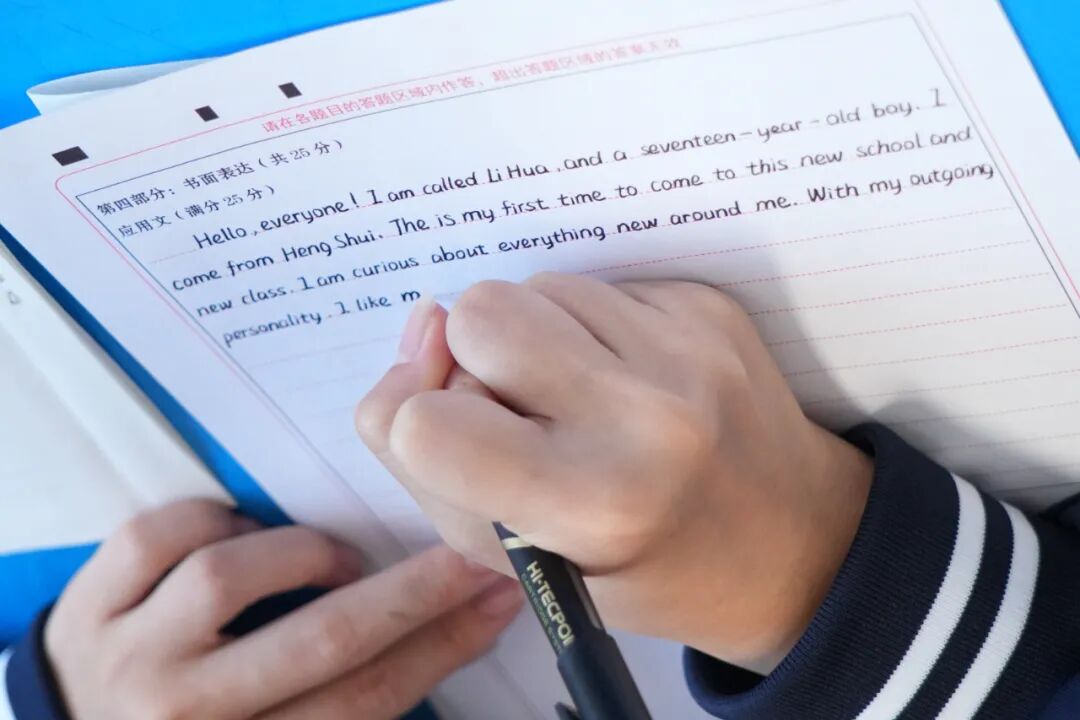 请在各题目的答题区域内作答，超出答题区域的答案无效
第四部分：书面表达（共25分）
应用文（满分25分）
Hello, everyone! I am called Li Hua, and a seventeen-year-old boy. I
come from Heng Shui. The is my first time to come to this new school and
new class. I am curious about everything new around me. With my outgoing
personality. I like m
HI-TECPOI